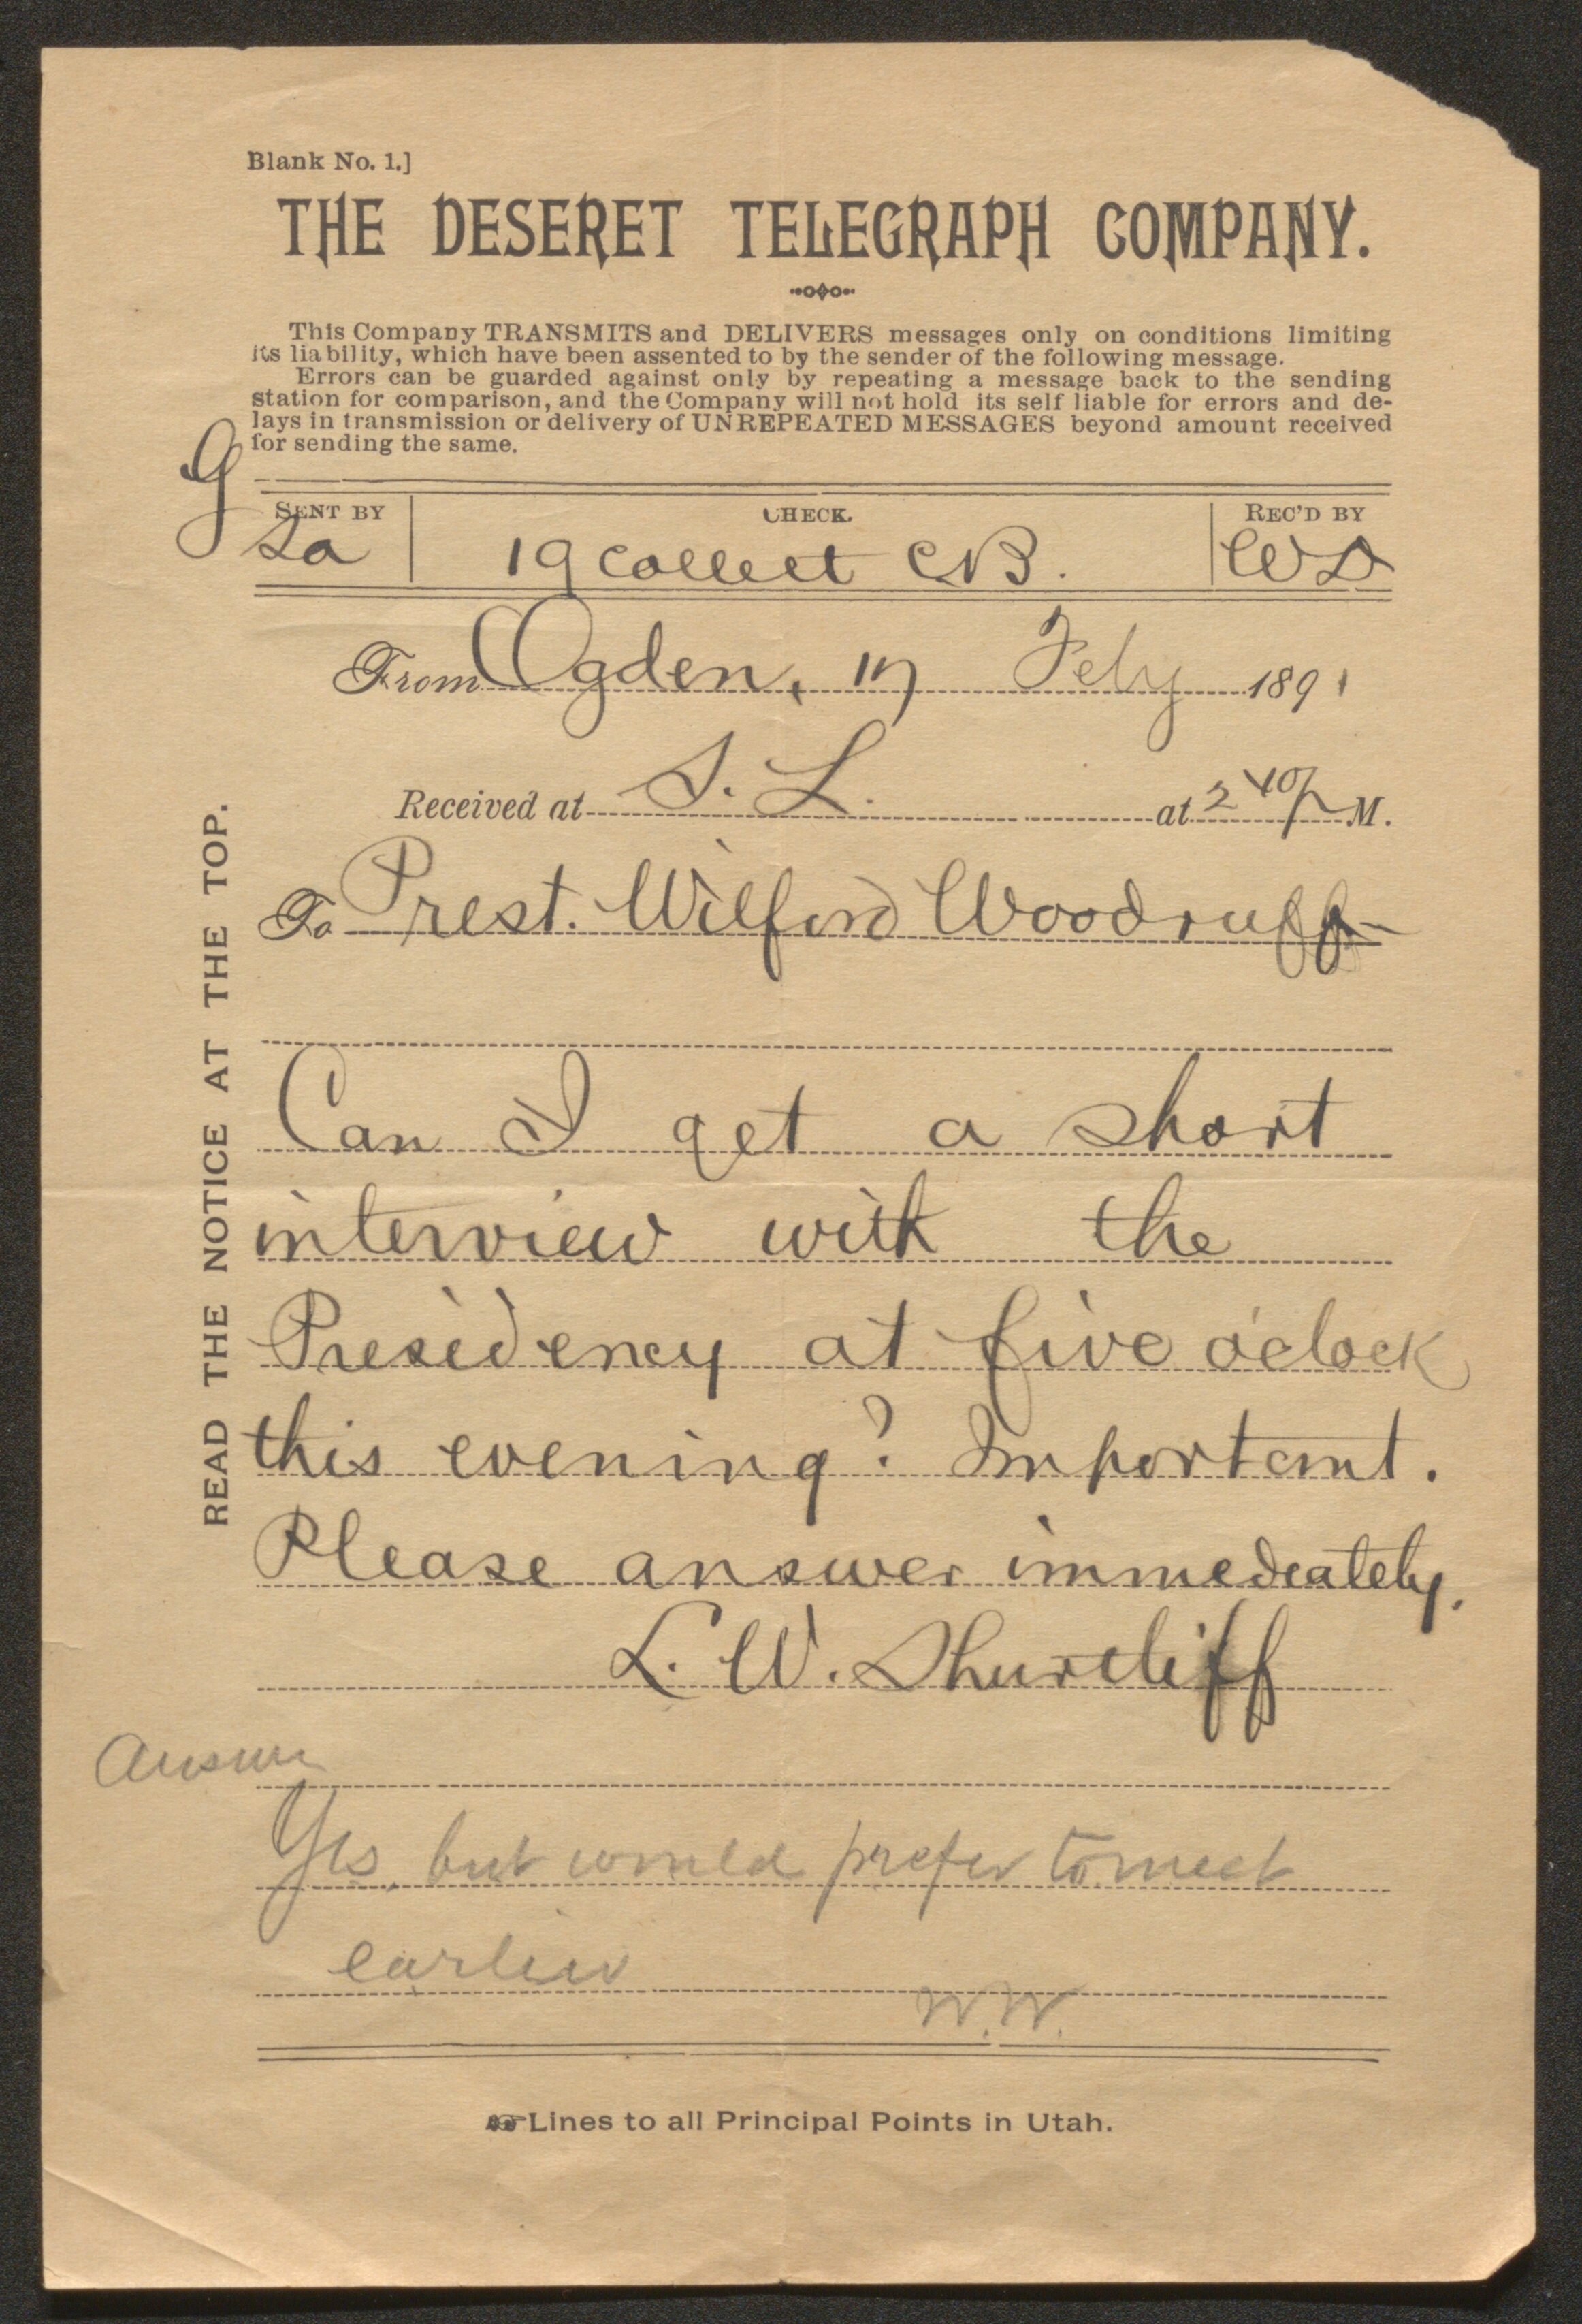 Blank No. 1.]
THE DESERET TELEGRAPH COMPANY.
This Company TRANSMITS and DELIVERS messages only on conditions limiting
its liability, which have been assented to by the sender of the following message.
Errors can be guarded against only by repeating a message back to the sending
station for comparison, and the Company will not hold its self liable for errors and de-
lays in transmission or delivery of UNREPEATED MESSAGES beyond amount received
for sending the same.
G
SENT BY CHECK. REC'D BY
19 collect
From Ogden, 17 Feby 1891
Received at S. L. at 2 40 P M.
To Prest. Wilford Woodruff
Can I get a short
interview with the
Presidency at five o'clock
this evening? Important.
Please answer immedeately.
L. W. Shurtliff
Answer
Yes, but would prefer to meet
earlier
W.W.
Lines to all Principal Points in Utah.
READ THE NOTICE AT THE TOP.